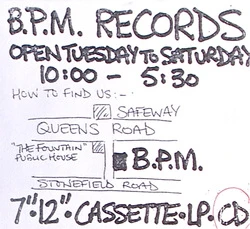 B.P.M. RECORDS
OPEN TUESDAY TO SATURDAY
10:00 - 5:30
HOW TO FIND US:-
SAFEWAY
QUEENS ROAD
"THE FOUNTAIN"
PUBLIC HOUSE
B.P.M.
STONEFIELD ROAD
7"·12"·CASSETTE·LP·CD